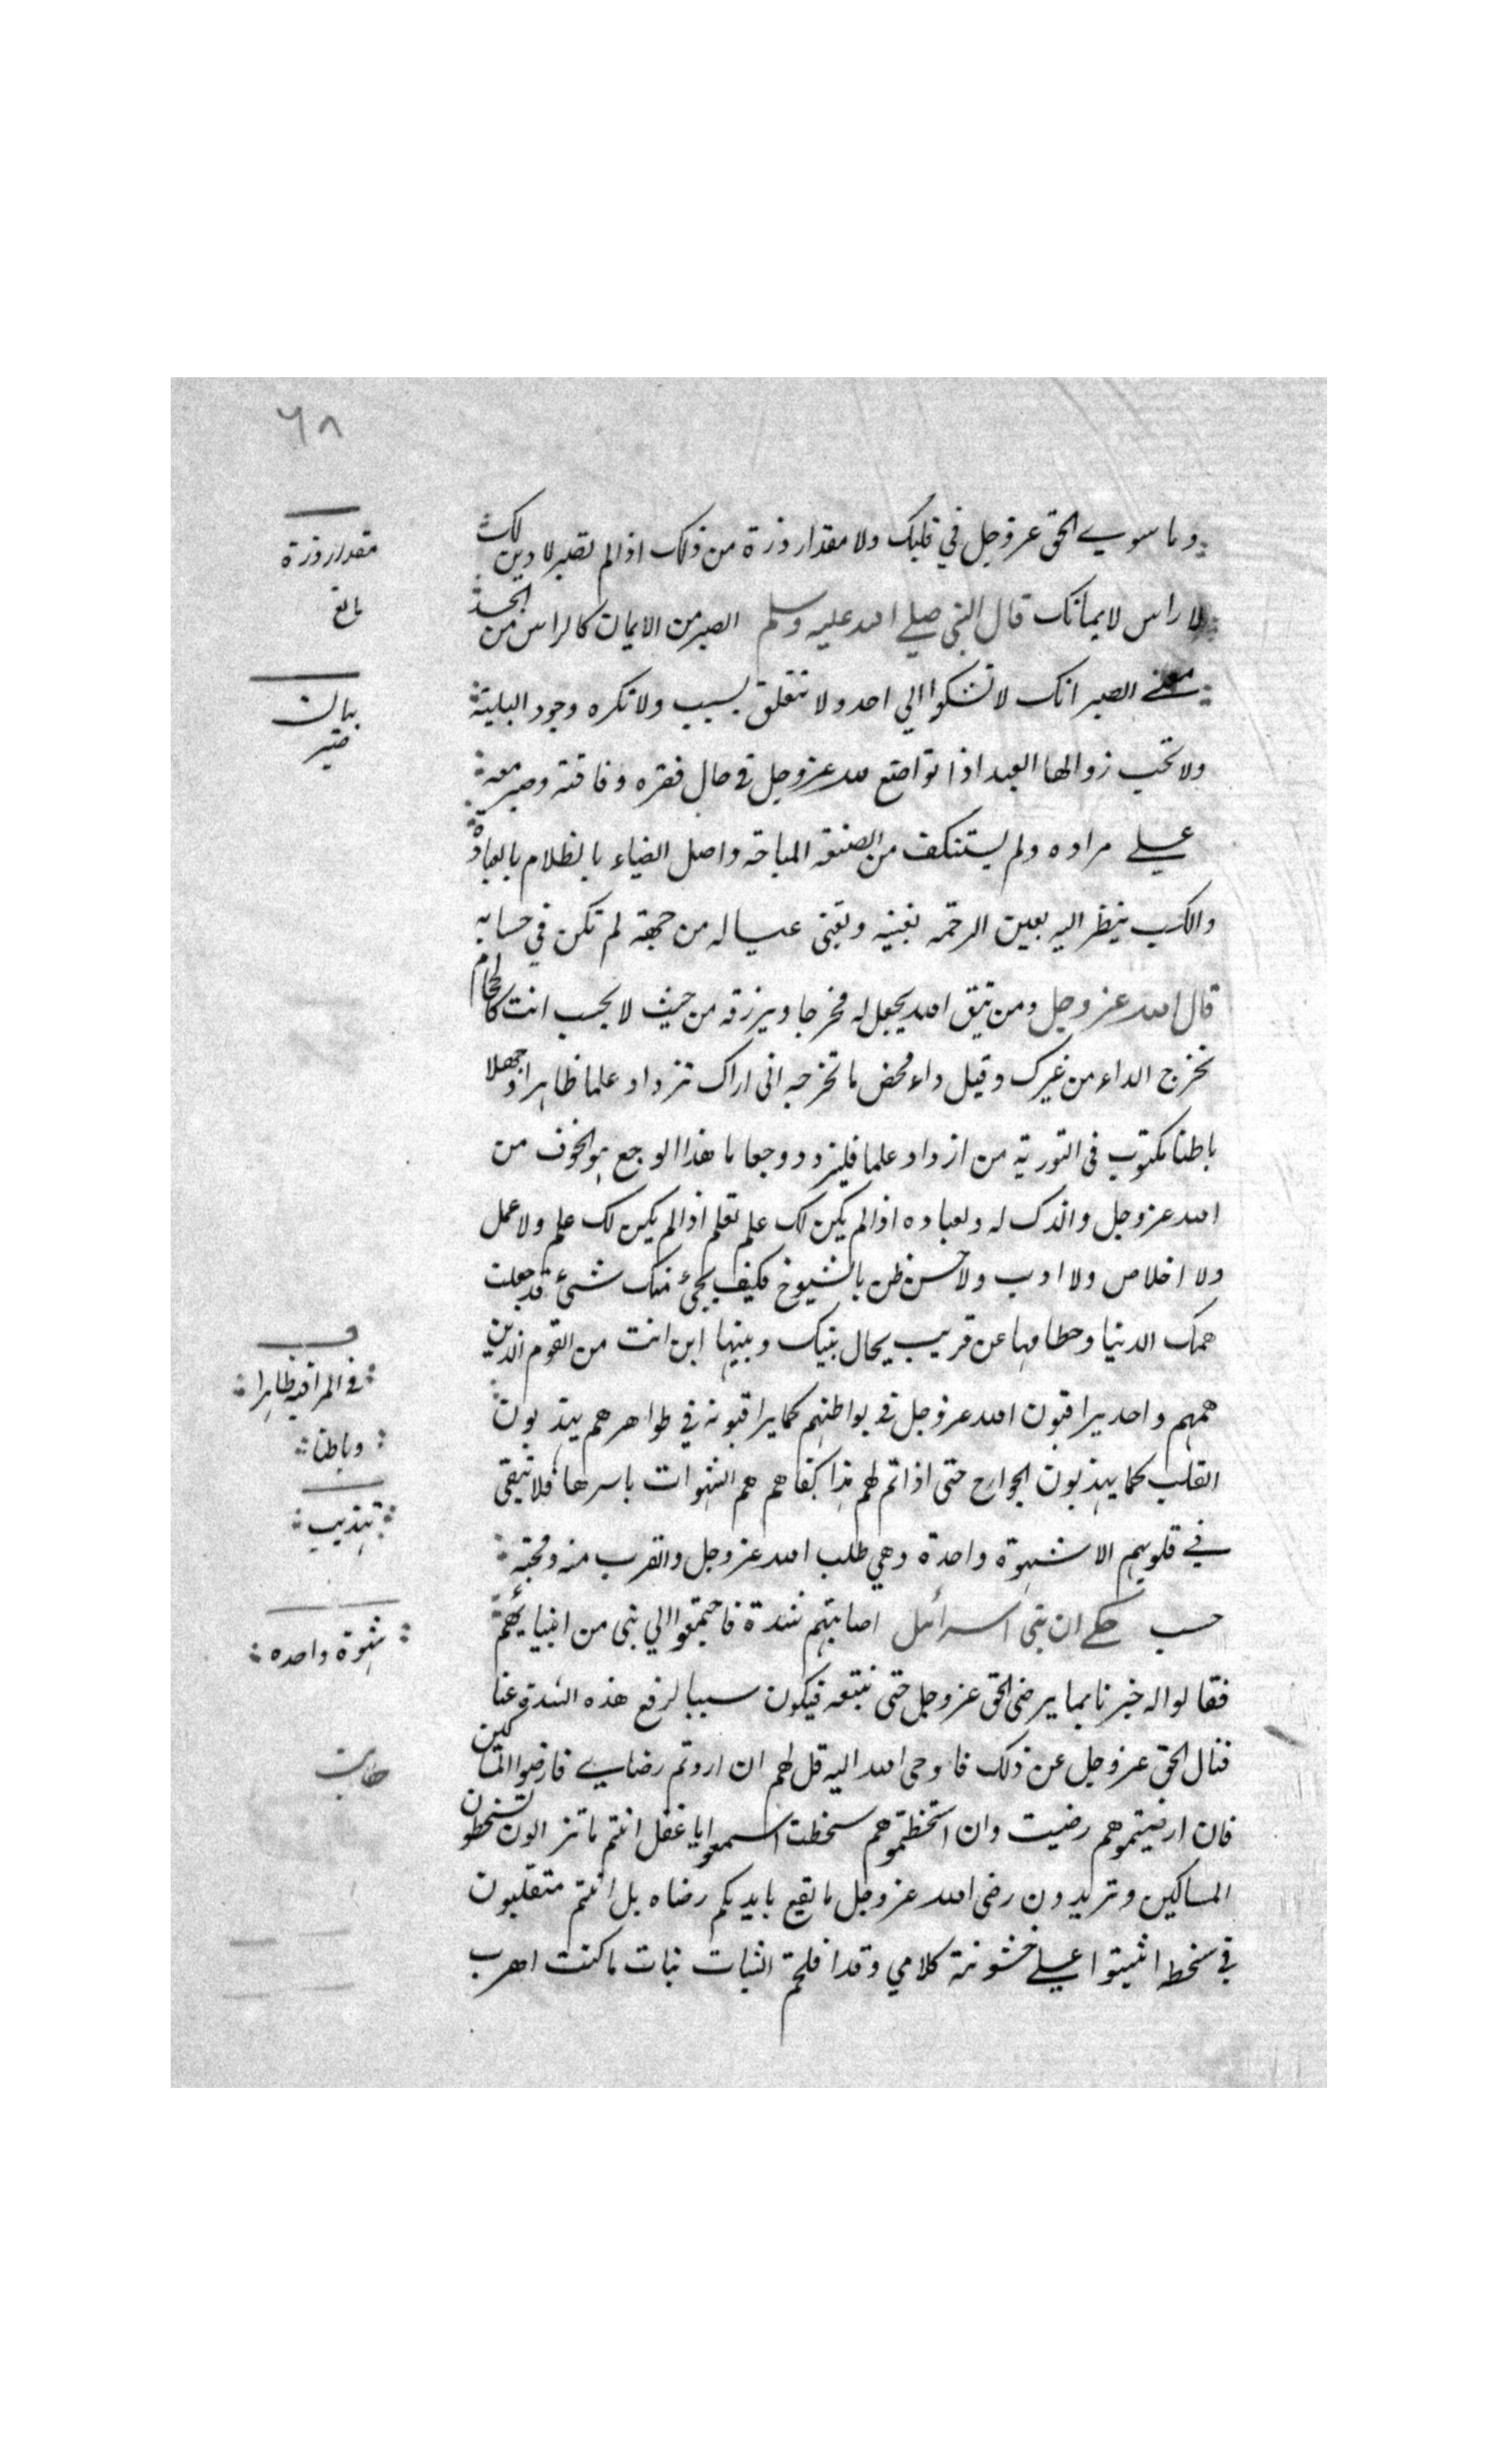 ٦٨
وما سوي الحق عز وجل في قلبك ولا مقدار ذرة من ذلك اذا لم تصبر لا دين لك
لا راس لايمانك قال النبي صلي الله عليه وسلم الصبر من الايمان كالراس من الجسد
معني الصبر انك لا تشكوا الي احد ولا تتعلق بسبب ولا تكره وجود البلية
ولا تحب زوالها العبد اذا تواضع لله عز وجل في حال فقره وفاقته وصبر معه
علي مراده ولم يستنكف من الصنعة المباحة واصل الضياء بالظلام بالعبادة
والكسب ينظر اليه بعين الرحمة يغنيه ويغنى عياله من جهة لم تكن في حسابه
قال الله عز وجل ومن يتق الله يجعل له مخرجا ويرزقه من حيث لا يحتسب انت كالحجام
تخرج الداء من غيرك وفيك داء محض ما تخرجه انى اراك تزداد علما ظاهرا وجهلا
باطنا مكتوب فى التورية من ازداد علما فليزدد وجعا ما هذا الوجع هو الخوف من
الله عز وجل والذل له ولعباده اذا لم يكن لك علم تعلم اذا لم يكن لك علم ولا عمل
ولا اخلاص ولا ادب ولا حسن ظن بالشيوخ فكيف يجئ منك شئ قد جعلت
همك الدنيا وحطامها عن قريب يحال بينك وبينها اين انت من القوم الذين
همهم واحد يراقبون الله عز وجل في بواطنهم كما يراقبونه في ظواهرهم يهذبون
القلب كما يهذبون الجوارح حتى اذا تم لهم هذا كفاهم هم الشهوات باسرها فلا تبقى
في قلوبهم الا شهوة واحدة وهي طلب الله عز وجل والقرب منه ومحبته
حسب حكي ان بني اسرائيل اصابتهم شدة فاجتمعوا الي نبى من انبيائهم
فقالوا له خبرنا بما يرضى الحق عز وجل حتى نتبعه فيكون سببا لرفع هذه الشدة عنا
فسال الحق عز وجل عن ذلك فاوحى الله اليه قل لهم ان اردتم رضايي فارضوا المساكين
فان ارضيتموهم رضيت وان اسخطتموهم سخطت اسمعوا يا غفل انتم ما تزالون تسخطون
المساكين وتريدون رضى الله عز وجل ما يقع بايديكم رضاه بل انتم متقلبون
في سخطه اثبتوا علي خشونة كلامي وقد افلحتم الثبات نبات ما كنت اهرب
مقدار ذرة
مانع
بيان
صبر
ف
في المراقبه ظاهرا
وباطنا
تهذيب
شهوة واحده
حكايت